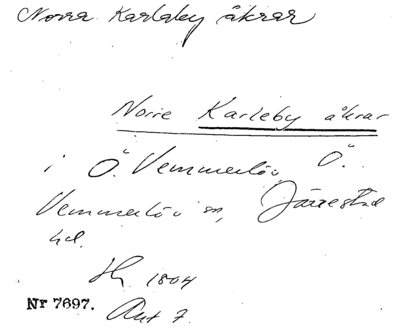 Norra Karlaby åkrar
Norre Karleby åkrar
i Ö. Vemmerlöv Ö.
Vemmerlöv sn, Järrestad
hd.
1804
Nr 7697.
Akt 7